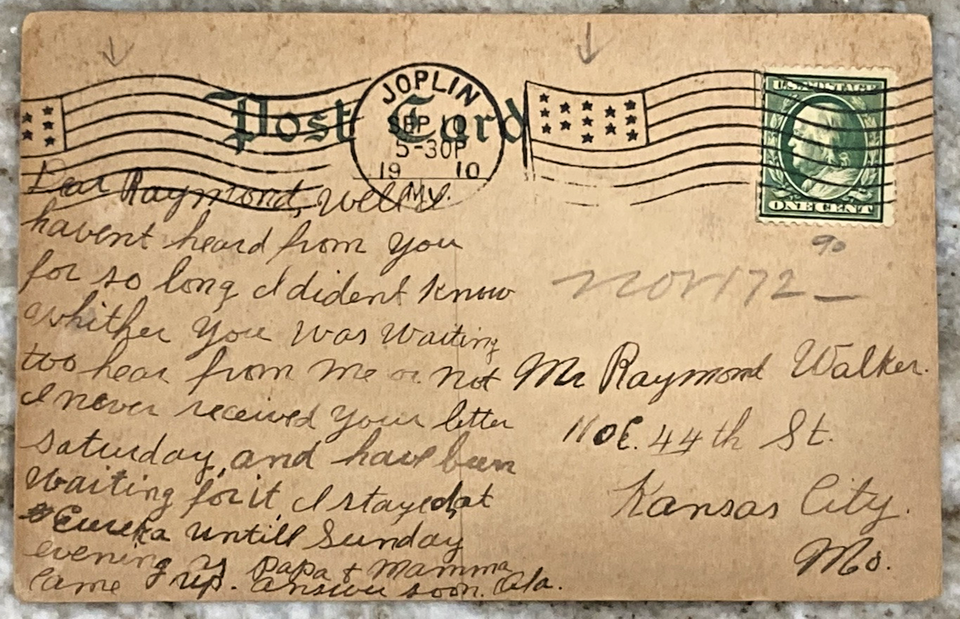 Post Card
JOPLIN
SEP 1
5-30P
1910
MO.
U.S. POSTAGE
ONE CENT
90
Dear Raymond, Well I
havent heard from you
for so long I dident know
whither you was waiting
too hear from me or not
I never received your letter
saturday, and have been
waiting for it, I stayed at
Eureka untill Sunday
evening Papa & Mamma
came up. answer soon. Ola.
Mr Raymond Walker.
E. 44th St.
Kansas City.
Mo.